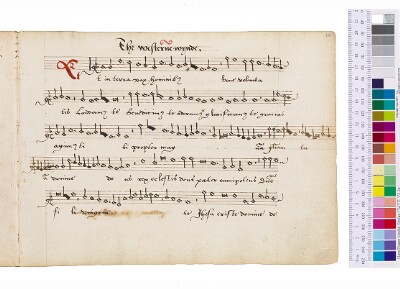 The westerne wynde.
Et in terra pax hominibz bone volunta
tis Laudamz te Benedicimz te adoramz te glorificamz te gracias
agimz ti bi propter mag nam gloriam tu
am domine de us rex celestis deus pater omnipotens Domine
fi li unigeni te Jhesu christe domine de